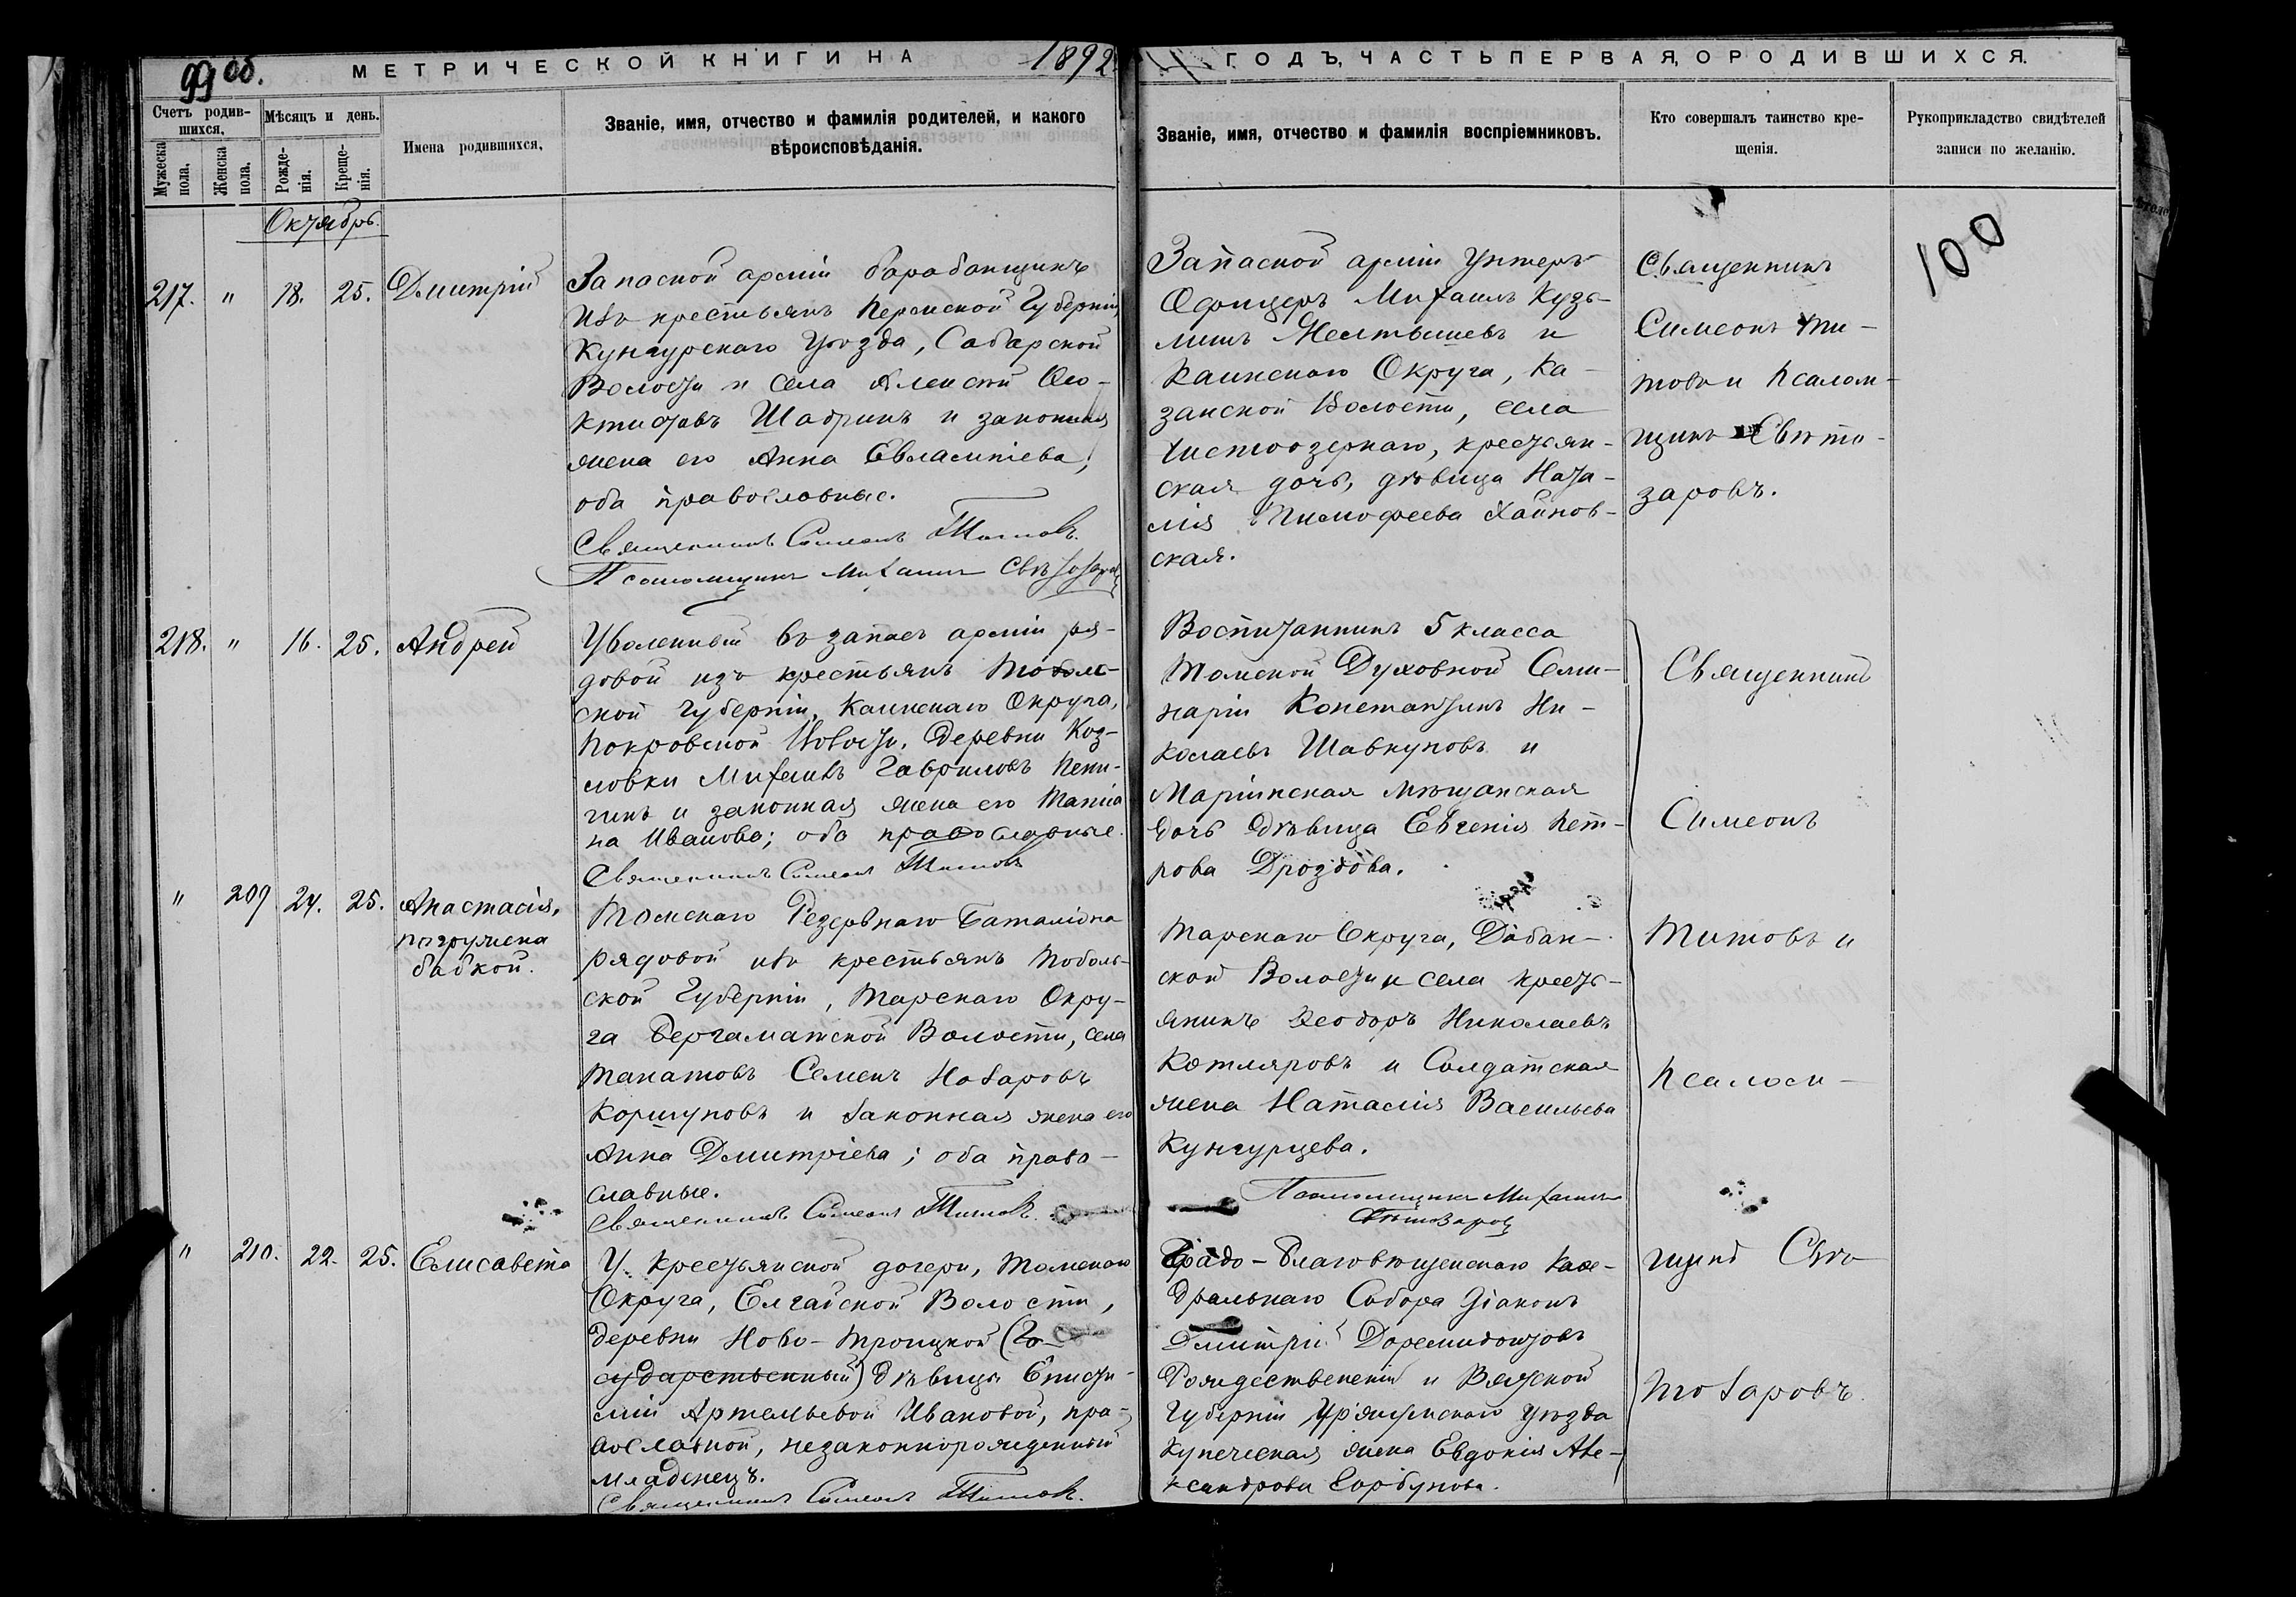 99 об.
МЕТРИЧЕСКОЙ КНИГИ НА 1892
ГОДЪ, ЧАСТЬ ПЕРВАЯ, О РОДИВШИХСЯ.
Счетъ родив-
шихся.
Мужеска
пола.
Женска
пола.
Мѣсяцъ и день.
Рожде-
нія.
Креще-
нія.
Имена родившихся.
Званіе, имя, отчество и фамилія родителей, и какого
вѣроисповѣданія.
Званіе, имя, отчество и фамилія воспріемниковъ.
Кто совершалъ таинство кре-
щенія.
Рукоприкладство свидѣтелей
записи по желанію.
100
Октябрь.
217. " 18. 25. Дмитрій
Запасной арміи барабанщикъ
изъ крестьянъ Пермской Губерніи,
Кунгурскаго Уѣзда, Сабарской
Волости и села Алексѣй Фео-
ктистовъ Шабринъ и законная
жена его Анна Евлампіева;
оба православные.
Священникъ Симеонъ Титовъ.
Псаломщикъ Михаилъ Свѣтозаровъ
Запасной арміи Унтеръ-
Офицеръ Михаилъ Кузь-
минъ Желтышевъ и
Каинскаго Округа, Ка-
занской Волости, села
Чистоозернаго, крестьян-
ская дочь, дѣвица Ната-
лія Тимофеева Хайнов-
ская.
Священникъ
Симеонъ Ти-
товъ и Псалом-
щикъ Свѣто-
заровъ.
218. " 16. 25. Андрей
Уволенный въ запасъ арміи ря-
довой изъ крестьянъ Томс-
ской Губерніи, Каинскаго Округа,
Покровской Волости, Деревни Коз-
ловки Михаилъ Гавриловъ Кени-
гинъ и законная жена его Татія
на Иванова; оба православные.
Священникъ Симеонъ Титовъ
Воспитанникъ 5 класса
Томской Духовной Семи-
наріи Константинъ Ни-
колаевъ Шавкуновъ и
Маріинская мѣщанская
дочь дѣвица Евгенія Пет-
рова Дроздова.
Священникъ
Симеонъ
" 209 24. 25. Анастасія,
погружена
бабкой.
Томскаго Резервнаго Баталіона
рядовой изъ крестьянъ Тоболь-
ской Губерніи, Тарскаго Окру-
га Бергаматской Волости, села
Танатовъ Семенъ Назаровъ
Коршуновъ и законная жена его
Анна Дмитріева; оба право-
славные.
Священникъ Симеонъ Титовъ.
Тарскаго Округа, Дабан-
ской Волости и села кресть-
янинъ Ѳеодоръ Николаевъ
Котляровъ и Солдатская
жена Наталія Васильева
Кунгурцева.
Псаломщикъ Михаилъ
Свѣтозаровъ
Титовъ и
Псалом-
" 210. 22. 25. Елисавета
У крестьянской дочери, Томскаго
Округа, Елгайской Волости,
деревни Ново-Троицкой (Го-
сударственный) дѣвицы Еписти-
міи Артемьевой Ивановой, пра-
вославной, незаконнорожденный
младенецъ.
Священникъ Симеонъ Титовъ.
Градо-Благовѣщенскаго Каѳе-
дральнаго Собора Діаконъ
Дмитрій Доремидонтовъ
Рождественскій и Вятской
Губерніи Уржумскаго Уѣзда
купеческая жена Евдокія Але-
ксандрова Горбунова.
щикъ Свѣ-
тозаровъ.